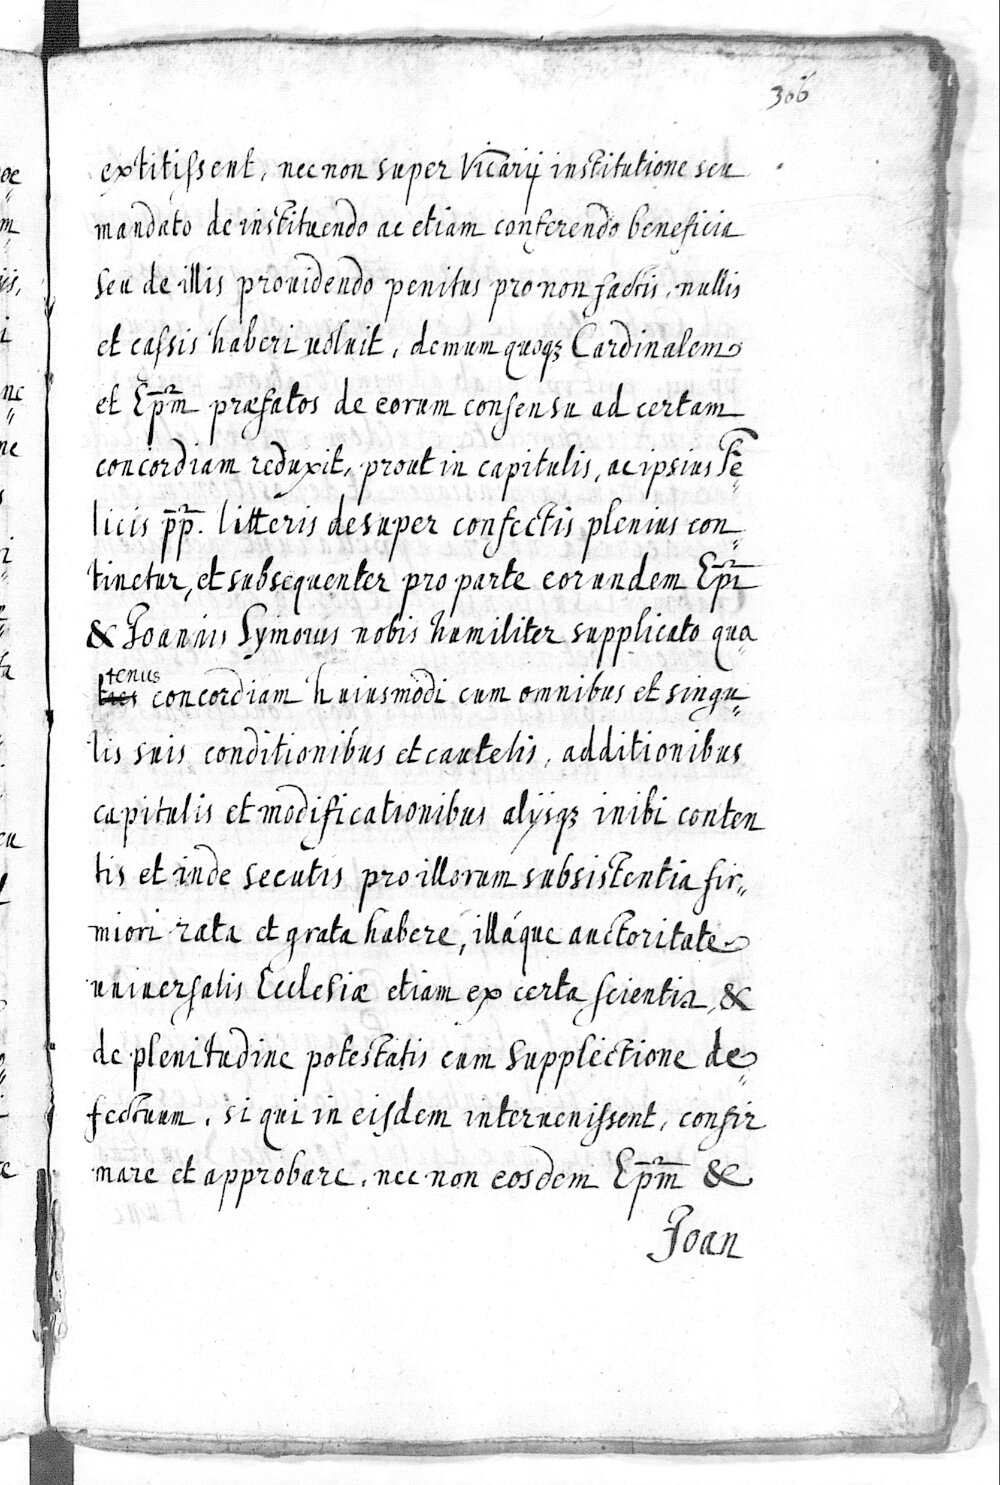 306
extitissent, nec non super Vicarij institutione seu
mandato de instituendo ac etiam conferendo beneficia
seu de illis prouidendo penitus pro non factis, nullis
et cassis haberi uoluit, demum quoqz Cardinalem
et Epm̄ præfatos de eorum consensu ad certam
concordiam reduxit, prout in capitulis, ac ipsius Fe=
licis pp. litteris desuper confectis plenius con=
tinetur, et subsequenter pro parte eorundem Epī
& Joannis Symonis nobis humiliter supplicato qua=
tenus
concordiam huiusmodi cum omnibus et singu=
lis suis conditionibus et cautelis, additionibus
capitulis et modificationibus alijsqz inibi conten
tis et inde secutis pro illorum subsistentia fir=
miori rata et grata habere, illáque auctoritate
uniuersalis Ecclesiæ etiam ex certa scientia, &
de plenitudine potestatis cum supplectione de=
fectuum, si qui in eisdem interuenissent, confir
mare et approbare, nec non eosdem Epm̄ &
Joan